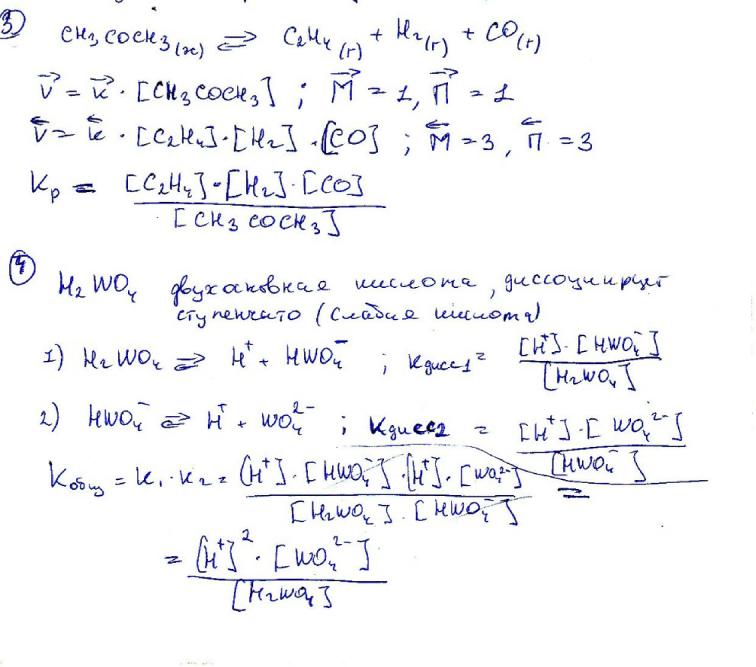 3) CH₃COCH₃(ж) ⇌ C₂H₄(г) + H₂(г) + CO(г)
v⃗ = k⃗ · [CH₃COCH₃] ; M⃗ = 1, П⃗ = 1
v⃖ = k⃖ · [C₂H₄]·[H₂]·[CO] ; M⃖ = 3, П⃖ = 3
Kр = [C₂H₄]·[H₂]·[CO] / [CH₃COCH₃]
4) H₂WO₄ двухосновная кислота, диссоциирует
ступенчато (слабая кислота)
1) H₂WO₄ ⇌ H⁺ + HWO₄⁻ ; Kдисс1 = [H⁺]·[HWO₄⁻] / [H₂WO₄]
2) HWO₄⁻ ⇌ H⁺ + WO₄²⁻ ; Kдисс2 = [H⁺]·[WO₄²⁻] / [HWO₄⁻]
Kобщ = K₁·K₂ = [H⁺]·[HWO₄⁻]·[H⁺]·[WO₄²⁻] / [H₂WO₄]·[HWO₄⁻] =
= [H⁺]²·[WO₄²⁻] / [H₂WO₄]